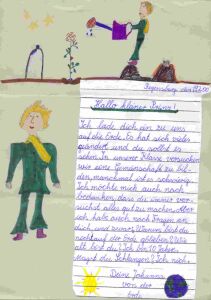 Regensburg,
Hallo kleiner Prinz!
Ich lade dich ein zu uns
auf die Erde. Es hat sich vieles
geändert und du solltest es
sehen. In unserer Klasse versuchen
wir eine Gemeinschaft zu bil-
den, manchmal ist es schwierig.
Ich möchte mich auch noch
bedanken, dass du immer ver-
suchst alles gut zu machen. Aber
ich habe auch noch Fragen an
dich, und zwar: Warum bist du
nicht auf der Erde geblieben? Wie
alt bist du? Ich bin 10 Jahre.
Magst du Schlangen? Ich nicht.
Deine Johanna
von der
Erde